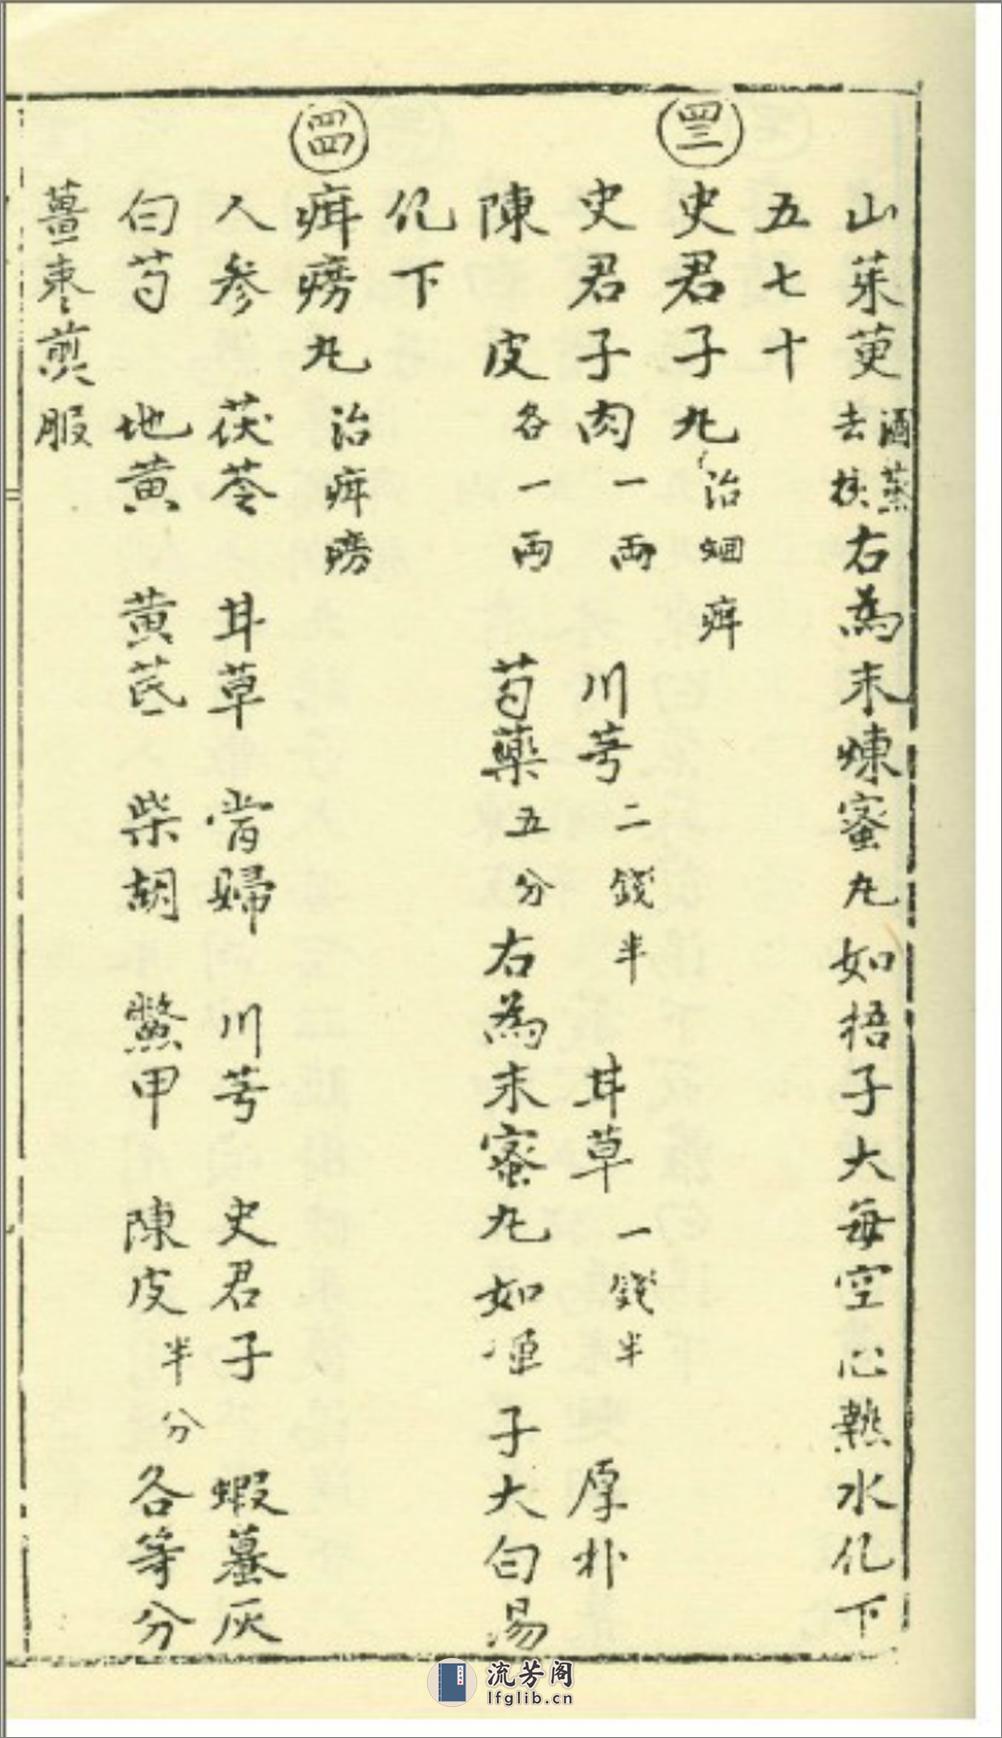 山茱萸酒蒸去核右為末煉蜜丸如梧子大每空心熱水化下
五七十
四三
史君子丸治蛔疳
史君子肉一兩 川芎二錢半 甘草一錢半 厚朴
陳皮各一兩 芍藥五分右為末蜜丸如 子大白湯
化下
四四
疳癆丸治疳癆
人參 茯苓 甘草 當歸 川芎 史君子 蝦蟇灰
白芍 地黄 黄芪 柴胡 鱉甲 陳皮半分各等分
薑棗煎服
流芳阁
lfglib.cn